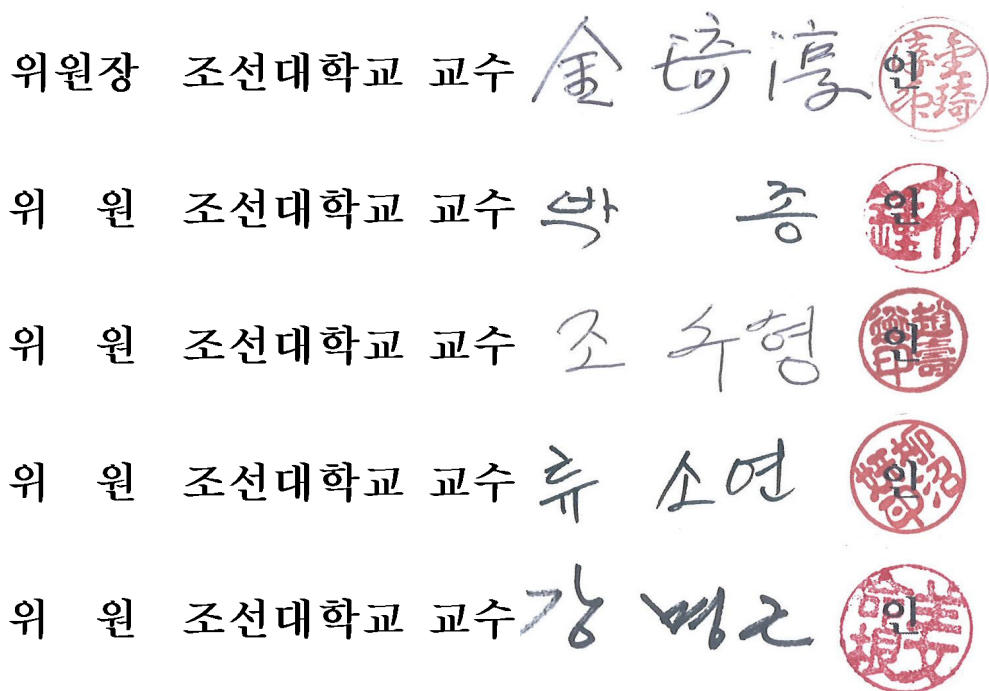 위원장 조선대학교 교수 金琦淳 인
위 원 조선대학교 교수 박 종 인
위 원 조선대학교 교수 조 수형 인
위 원 조선대학교 교수 류 소연 인
위 원 조선대학교 교수 강 명근 인